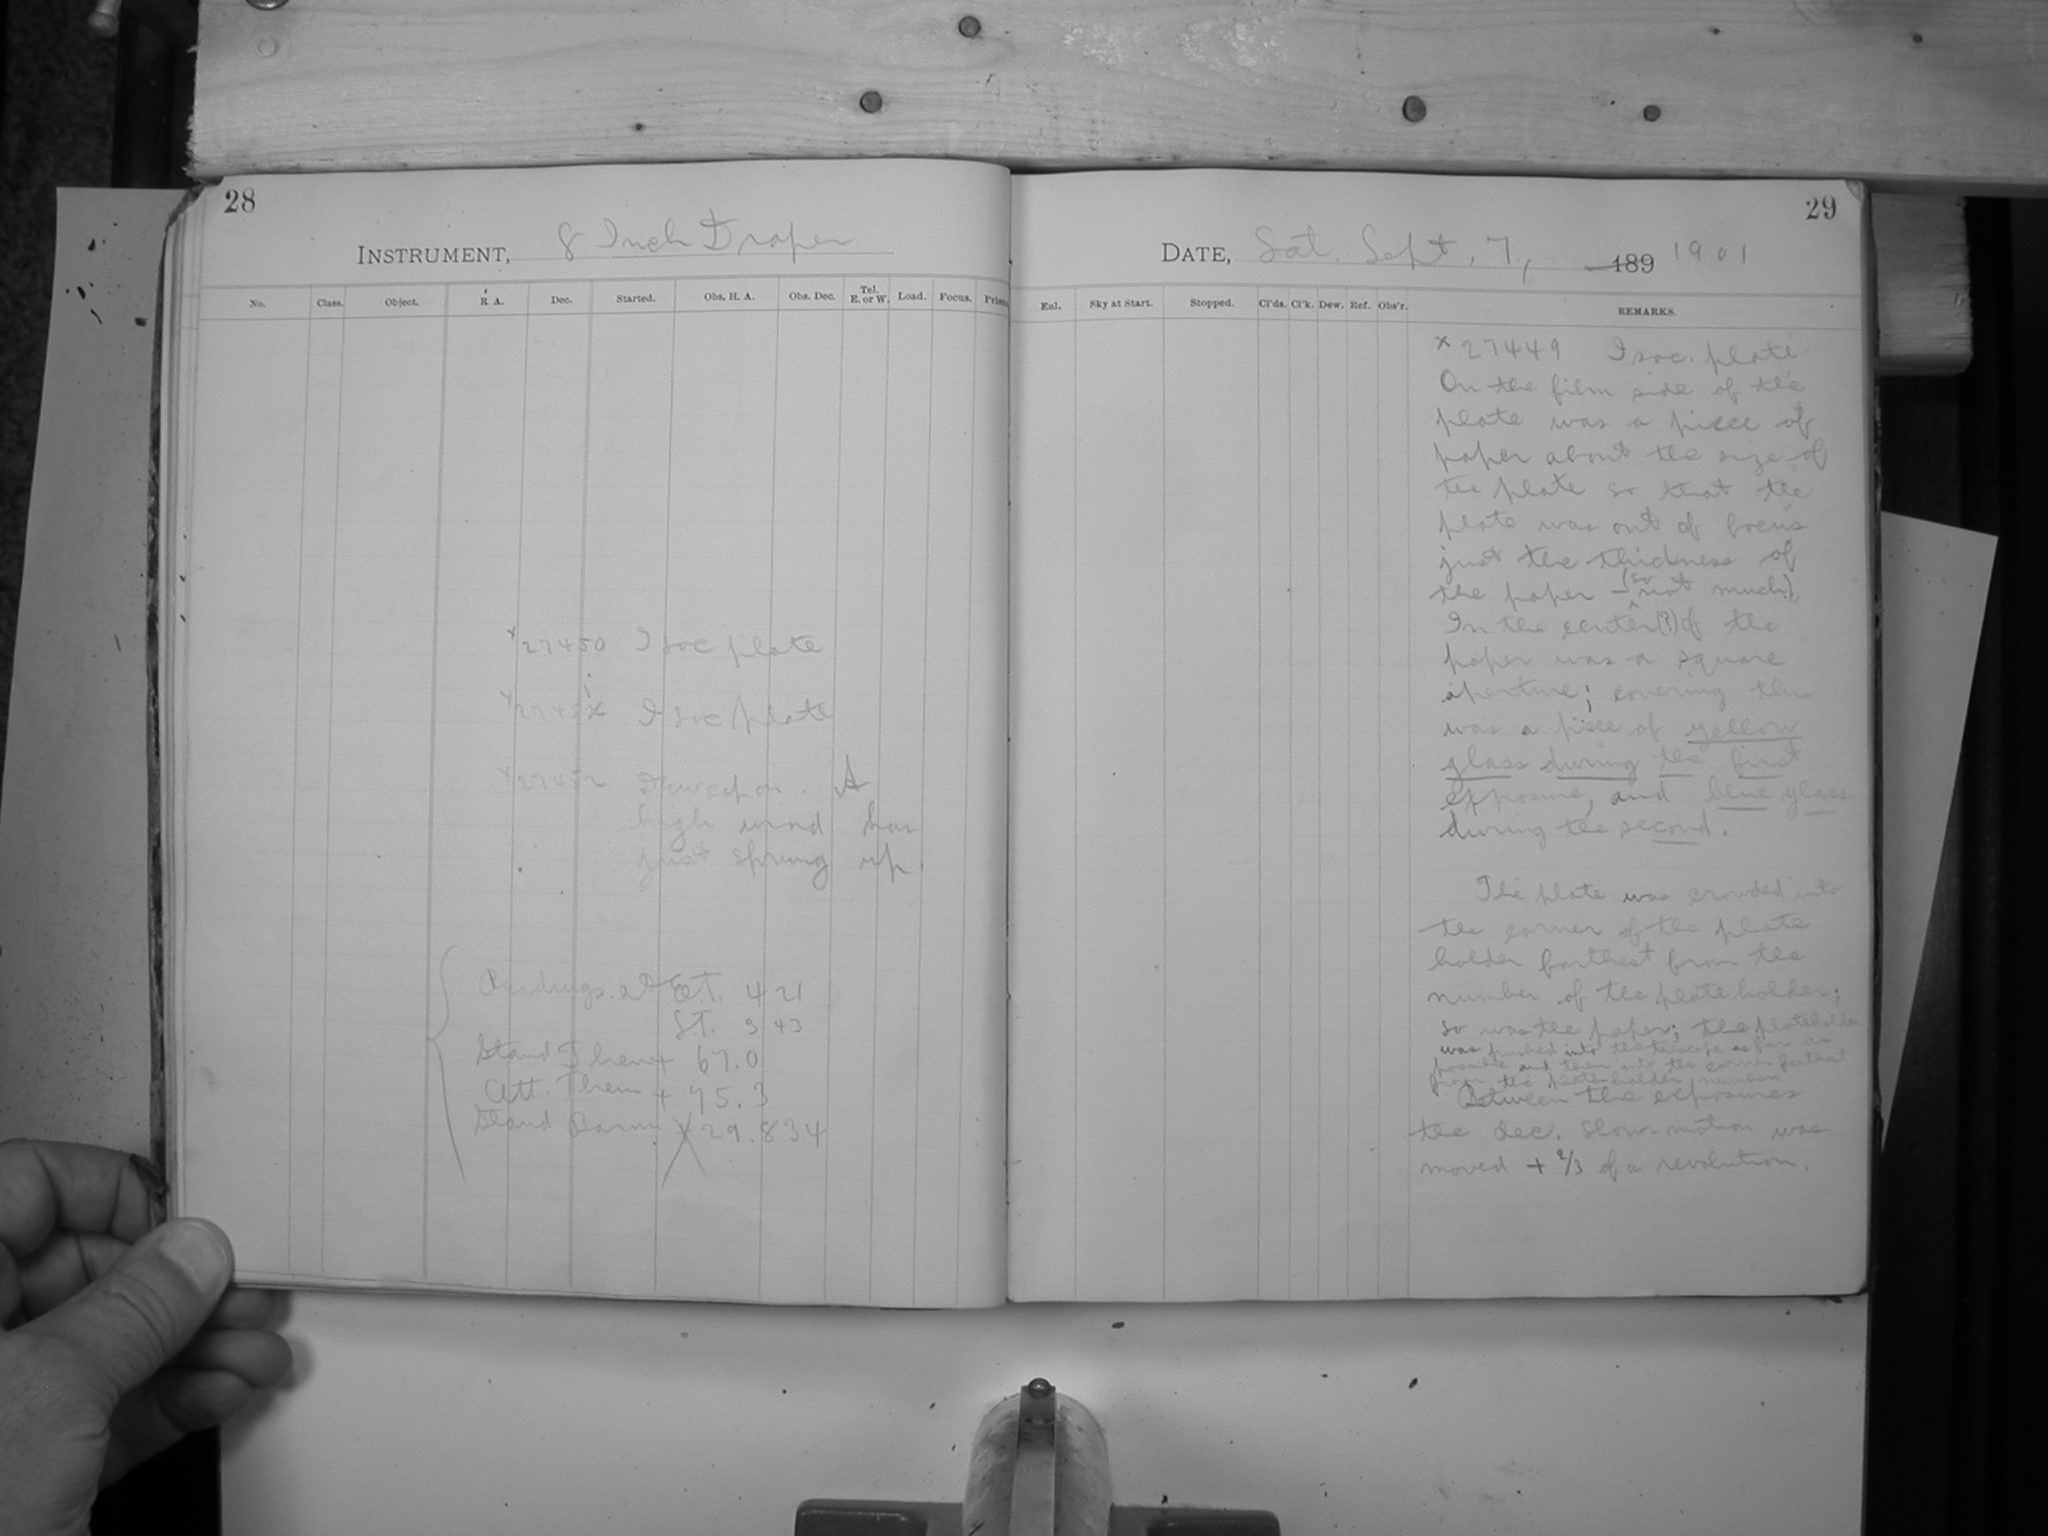 28
INSTRUMENT, 8 Inch Draper
No. Class. Object. R. A. Dec. Started. Obs. H. A. Obs. Dec. Tel. E. or W. Load. Focus. Prism
x27450 Isoc plate
Isoc plate
x27452
A
high wind has
just sprung up.
Readings at E.T. 421
S.T. 343
Stand Therm + 67.0
Att. Therm + 75.3
Stand Barom 29.834
29
DATE, Sat. Sept. 7, 189 1901
Enl. Sky at Start. Stopped. Cl'ds. Cl'k. Dew. Ref. Obs'r. REMARKS.
x 27449 Isoc. plate
On the film side of the
plate was a piece of
paper about the size of
the plate so that the
plate was out of focus
just the thickness of
the paper (so not much).
In the center(?) of the
paper was a square
aperture; covering this
was a piece of yellow
glass during the first
exposure, and blue glass
during the second.
The plate was crowded into
the corner of the plate
holder farthest from the
number of the plateholder;
so was the paper; the plateholder
was pushed into the telescope as far as
possible and then into the corner farthest
from the plate-holder number.
Between the exposures
the dec. slow-motion was
moved + 2/3 of a revolution.